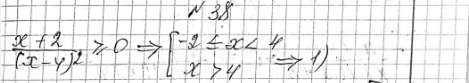 №38
(x+2)/(x-4)² ≥ 0 ⇒ [-2 ≤ x < 4
x > 4 ⇒ 1)